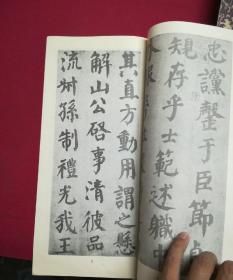 忠讜罄于臣節貞
規存乎士範述職中
其直方動用謂之懸
解山公啓事清彼品
流叔孫制禮光我王